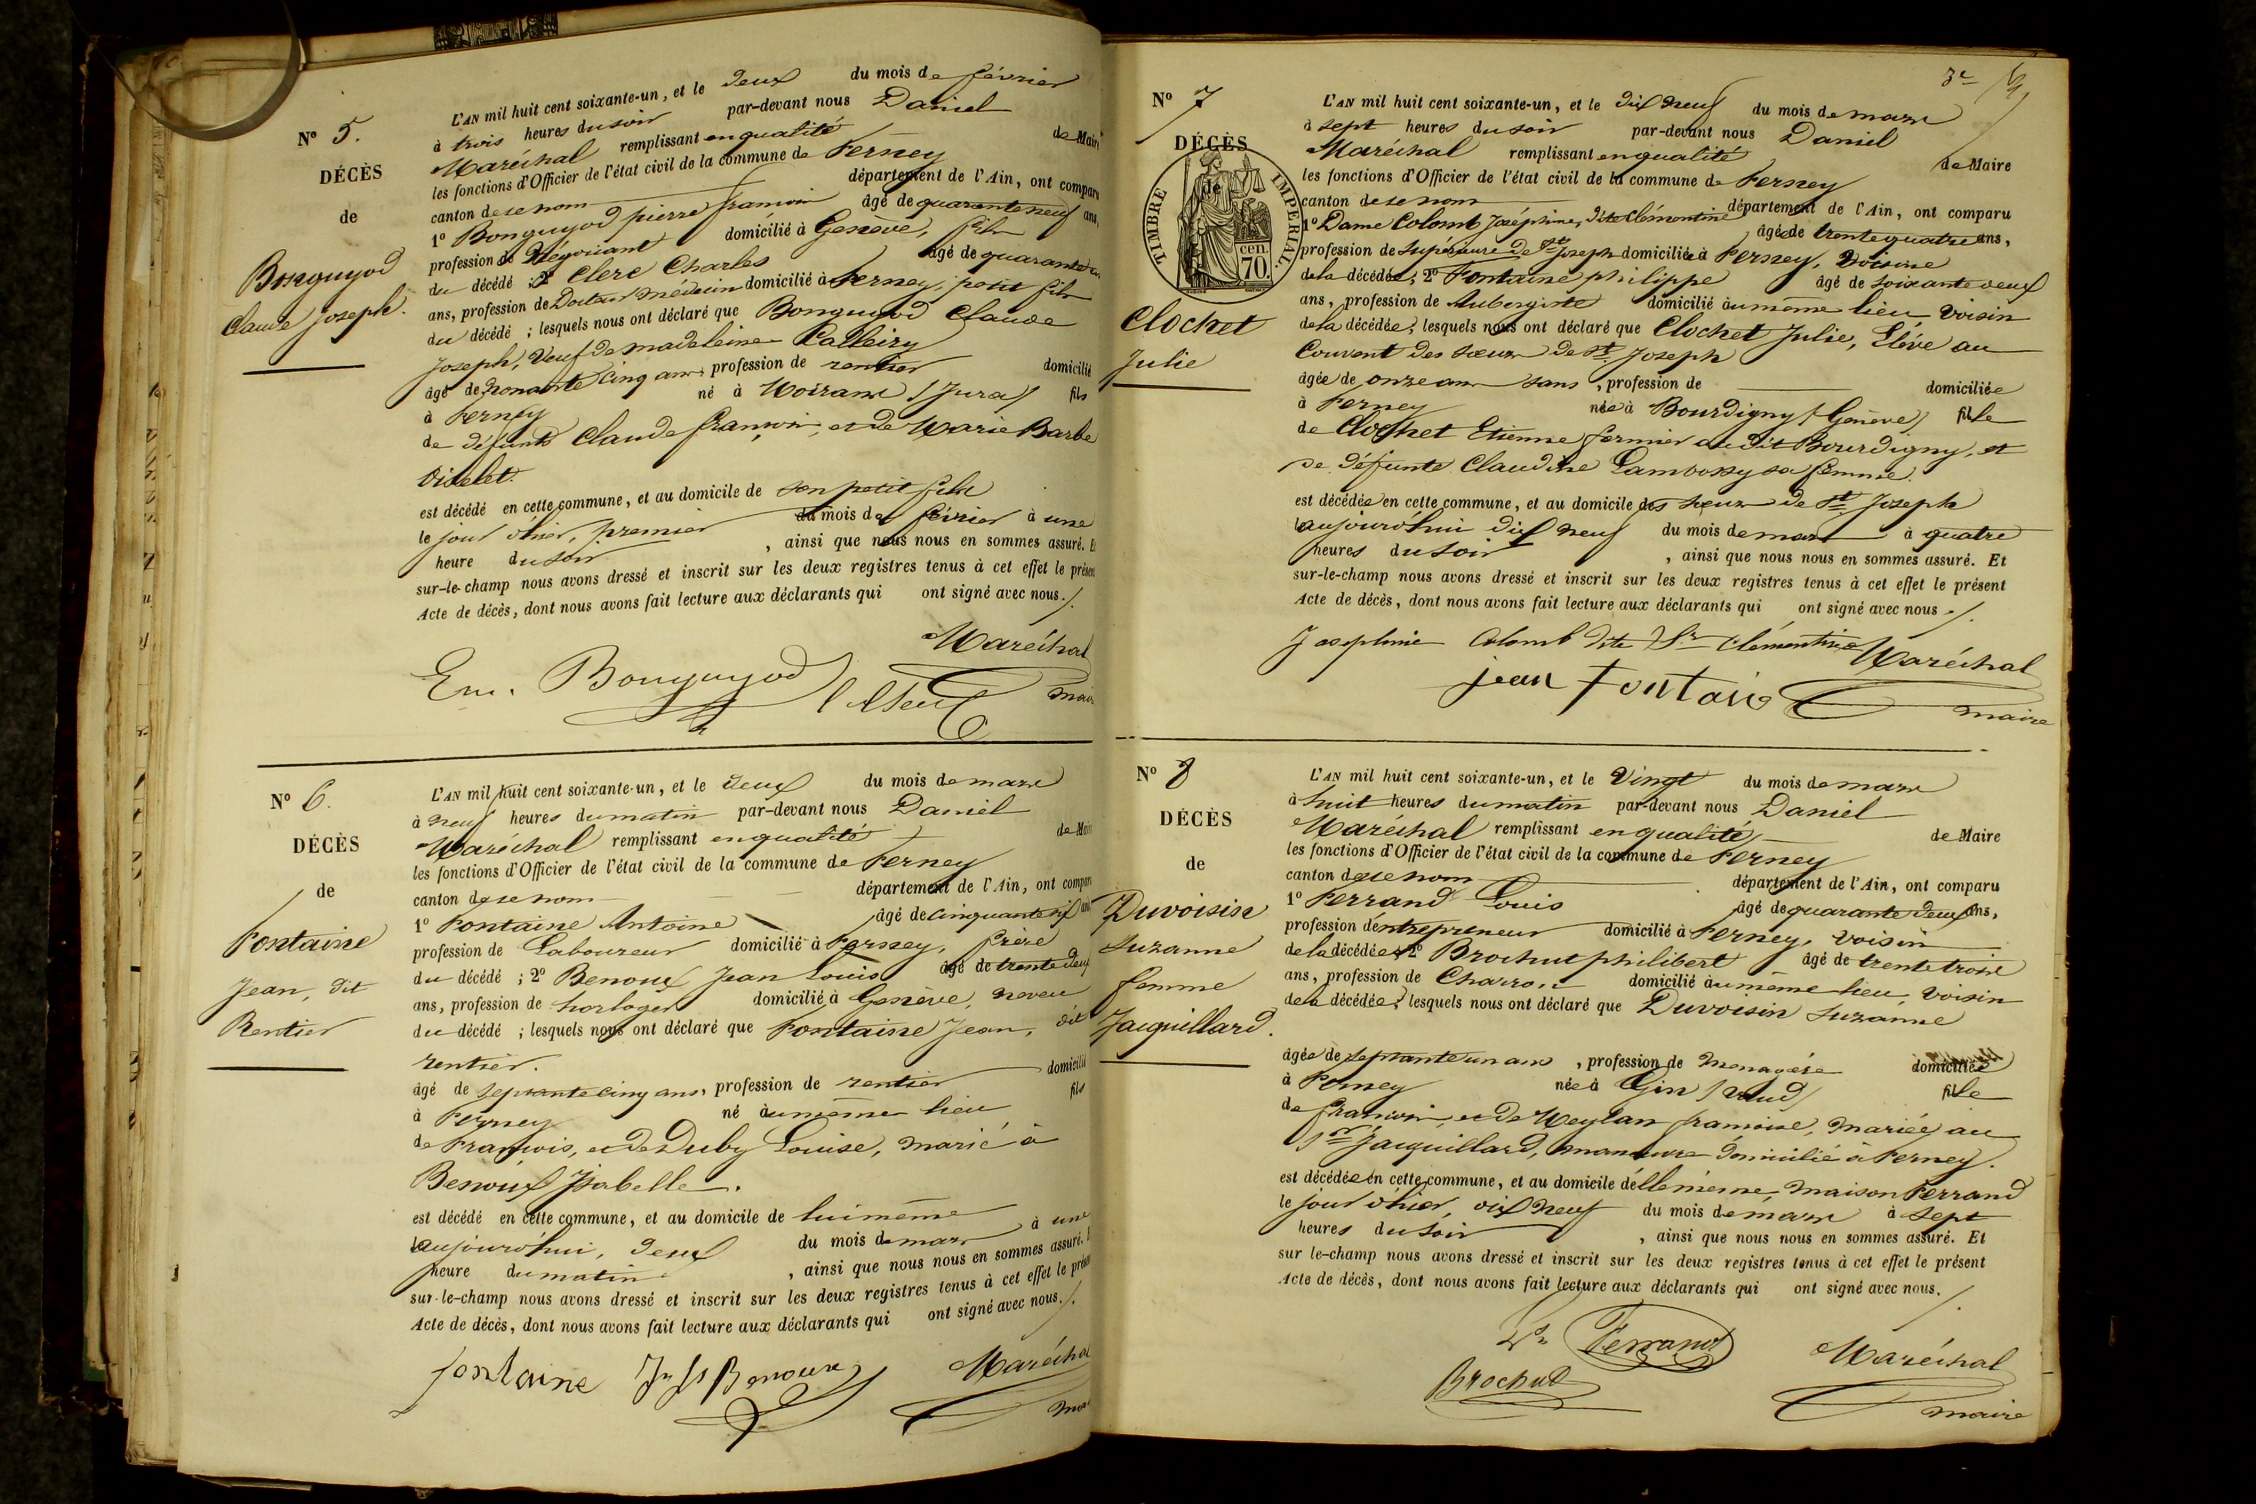 Nº 5.
DÉCÈS
de
Bonguyod
Claude joseph.
L'AN mil huit cent soixante-un, et le deux du mois de février
à trois heures du soir par-devant nous Daniel
Maréchal remplissant en qualité de Maire
les fonctions d'Officier de l'état civil de la commune de Ferney
canton de ce nom département de l'Ain, ont comparu
1º Bonguyod pierre françois âgé de quarante neuf ans,
profession de Négociant domicilié à Genève, fils
du décédé ; 2º Clerc Charles âgé de quarante
ans, profession de Docteur Médecin domicilié à Ferney, petit fils
du décédé ; lesquels nous ont déclaré que Bonguyod Claude
Joseph, Veuf de madeleine
âgé de nonante cinq ans, profession de rentier domicilié
à Ferney né à Moirans (Jura) fils
de défunts Claude françois, et de Marie Barbe
Vidalet.
est décédé en cette commune, et au domicile de son petit fils
le jour d'hier, premier du mois de février à une
heure du soir , ainsi que nous nous en sommes assuré. Et
sur-le-champ nous avons dressé et inscrit sur les deux registres tenus à cet effet le présent
Acte de décès, dont nous avons fait lecture aux déclarants qui ont signé avec nous./.
Maréchal
Em. Bonguyod
maire
Nº 6.
DÉCÈS
de
Fontaine
Jean, dit
Rentier
L'AN mil huit cent soixante-un, et le deux du mois de mars
à neuf heures du matin par-devant nous Daniel
Maréchal remplissant en qualité de Maire
les fonctions d'Officier de l'état civil de la commune de Ferney
canton de ce nom département de l'Ain, ont comparu
1º Fontaine Antoine âgé de cinquante six ans
profession de Laboureur domicilié à Ferney, frère
du décédé ; 2º Benoux Jean Louis âgé de trente deux
ans, profession de horloger domicilié à Genève, neveu
du décédé ; lesquels nous ont déclaré que Fontaine Jean, dit
rentier.
âgé de septante cinq ans, profession de rentier domicilié
à Ferney né au même lieu fils
de François, et de Duby Louise, marié à
Benoux Isabelle.
est décédé en cette commune, et au domicile de lui même
aujourd'hui, deux du mois de mars à une
heure du matin , ainsi que nous nous en sommes assuré. Et
sur-le-champ nous avons dressé et inscrit sur les deux registres tenus à cet effet le présent
Acte de décès, dont nous avons fait lecture aux déclarants qui ont signé avec nous./.
fontaine Jn Ls Benoux Maréchal
3e
Nº 7
DÉCÈS
de
TIMBRE IMPÉRIAL
70. cen.
Clochet
Julie
L'AN mil huit cent soixante-un, et le dix neuf du mois de mars
à sept heures du soir par-devant nous Daniel
Maréchal remplissant en qualité de Maire
les fonctions d'Officier de l'état civil de la commune de Ferney
canton de ce nom département de l'Ain, ont comparu
1º Dame Colomb Joséphine, dite Clémentine âgée de trente quatre ans,
profession de Supérieure de St Joseph domiciliée à Ferney, voisine
de la décédée ; 2º Fontaine philippe âgé de soixante deux
ans, profession de Aubergiste domicilié au même lieu voisin
de la décédée ; lesquels nous ont déclaré que Clochet Julie, Elève au
Couvent des sœurs de St Joseph
âgée de onze ans sans , profession de domiciliée
à Ferney née à Bourdigny (Genève) fille
de Clochet Etienne fermier au dit Bourdigny, et
de défunte Claudine Lambossy sa femme.
est décédée en cette commune, et au domicile des sœurs de St Joseph
aujourd'hui dix neuf du mois de mars à quatre
heures du soir , ainsi que nous nous en sommes assuré. Et
sur-le-champ nous avons dressé et inscrit sur les deux registres tenus à cet effet le présent
Acte de décès, dont nous avons fait lecture aux déclarants qui ont signé avec nous./.
Josephine Colomb dite Sr Clémentine Maréchal
jean Fontaine
maire
Nº 8
DÉCÈS
de
Duvoisin
Suzanne
femme
Jaquillard.
L'AN mil huit cent soixante-un, et le Vingt du mois de mars
à huit heures du matin par-devant nous Daniel
Maréchal remplissant en qualité de Maire
les fonctions d'Officier de l'état civil de la commune de Ferney
canton de ce nom département de l'Ain, ont comparu
1º Ferrand Louis âgé de quarante deux ans,
profession d'entrepreneur domicilié à Ferney, voisin
de la décédée ; 2º Brochut philibert âgé de trente trois
ans, profession de Charron domicilié au même lieu, voisin
de la décédée ; lesquels nous ont déclaré que Duvoisin Suzanne
âgée de septante un ans , profession de menagère domiciliée
à Ferney née à Gin (Vaud) fille
de françois, et de Meylan françoise, mariée au
Sr Jaquillard, manœuvre domicilié à Ferney.
est décédée en cette commune, et au domicile d'elle même, maison Ferrand
le jour d'hier, dix neuf du mois de mars à sept
heures du soir , ainsi que nous nous en sommes assuré. Et
sur le-champ nous avons dressé et inscrit sur les deux registres tenus à cet effet le présent
Acte de décès, dont nous avons fait lecture aux déclarants qui ont signé avec nous./.
Ls Ferrand Maréchal
Brochut
maire